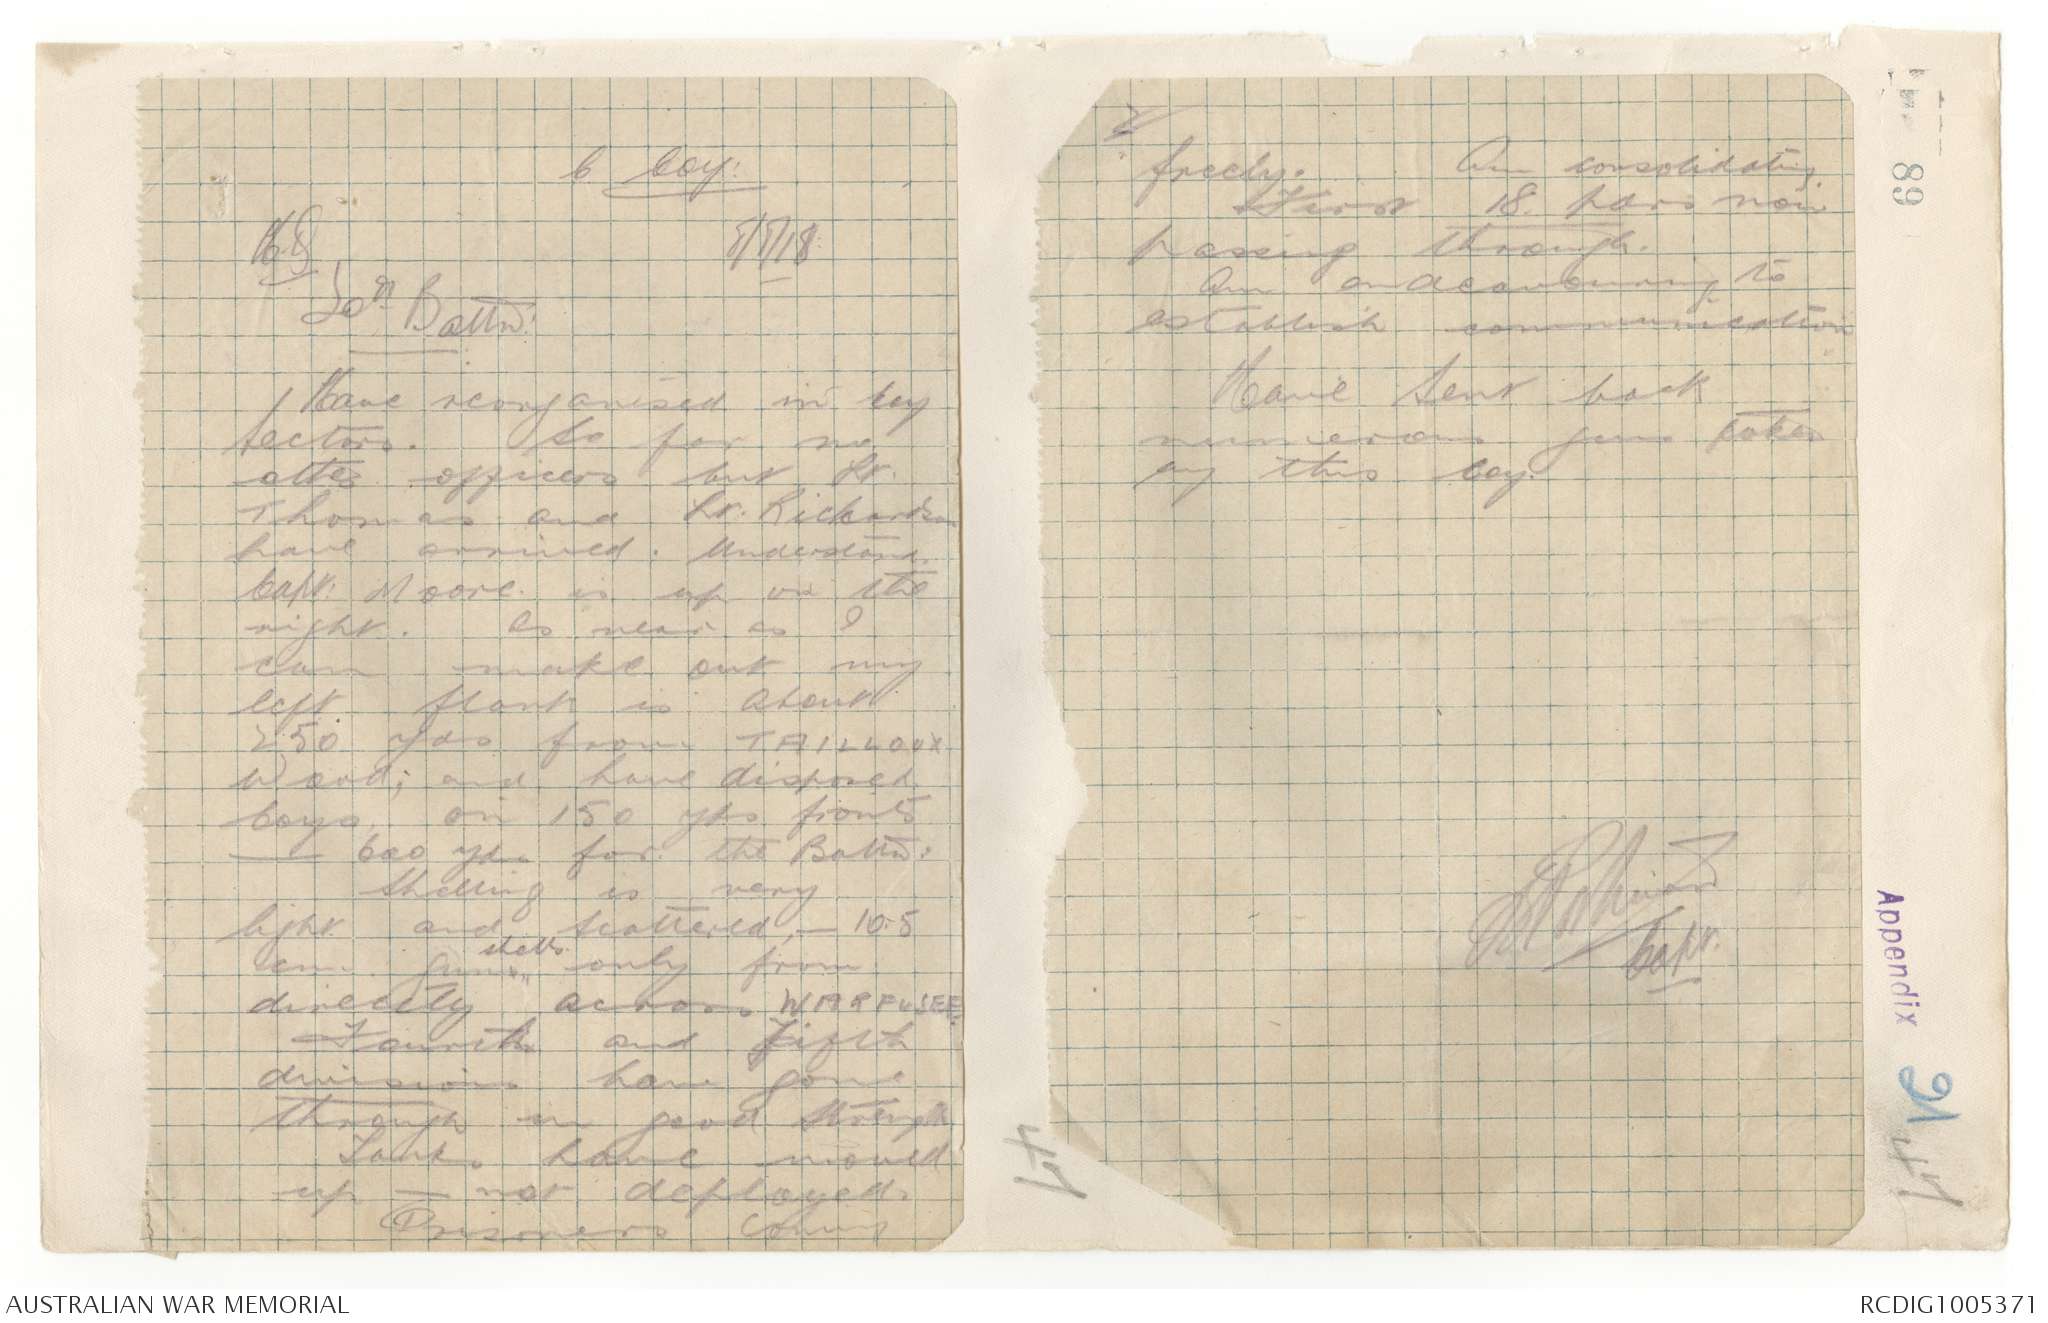 C Coy:
8/8/18
Battn:
Have reorganised in Coy
Sectors. So far no
other officers but Lt.
Thomas and Lt. Richardson
have arrived. Understand
Capt. Moore is up on the
right. As near as I
can make out my
left flank is about
250 yds from TAILLOUX
Wood; and have disposed
Coys, on 150 yds fronts
— 600 yds for the Battn:
Shelling is very
light and scattered, — 10.5
cm. guns shells only from
directly across WARFUSEE
Fourth and Fifth
divisions have gone
through in good strength
Tanks have moved
up — not deployed.
Prisoners coming
2/
freely. Am consolidating.
First 18. pdrs now
passing through.
Am endeavouring to
establish communication
Have sent back
numerous guns taken
by this Coy.
Capt.
89
Appendix 21
44
44
AUSTRALIAN WAR MEMORIAL
RCDIG1005371